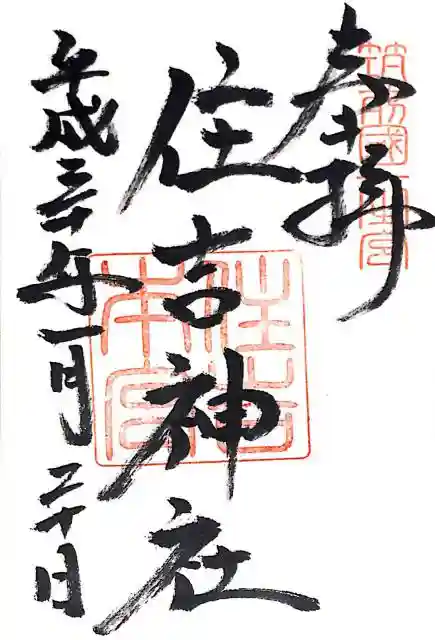 奉拝
筑前國一之宮
住吉神社
住吉本宮
平成三十年一月二十日